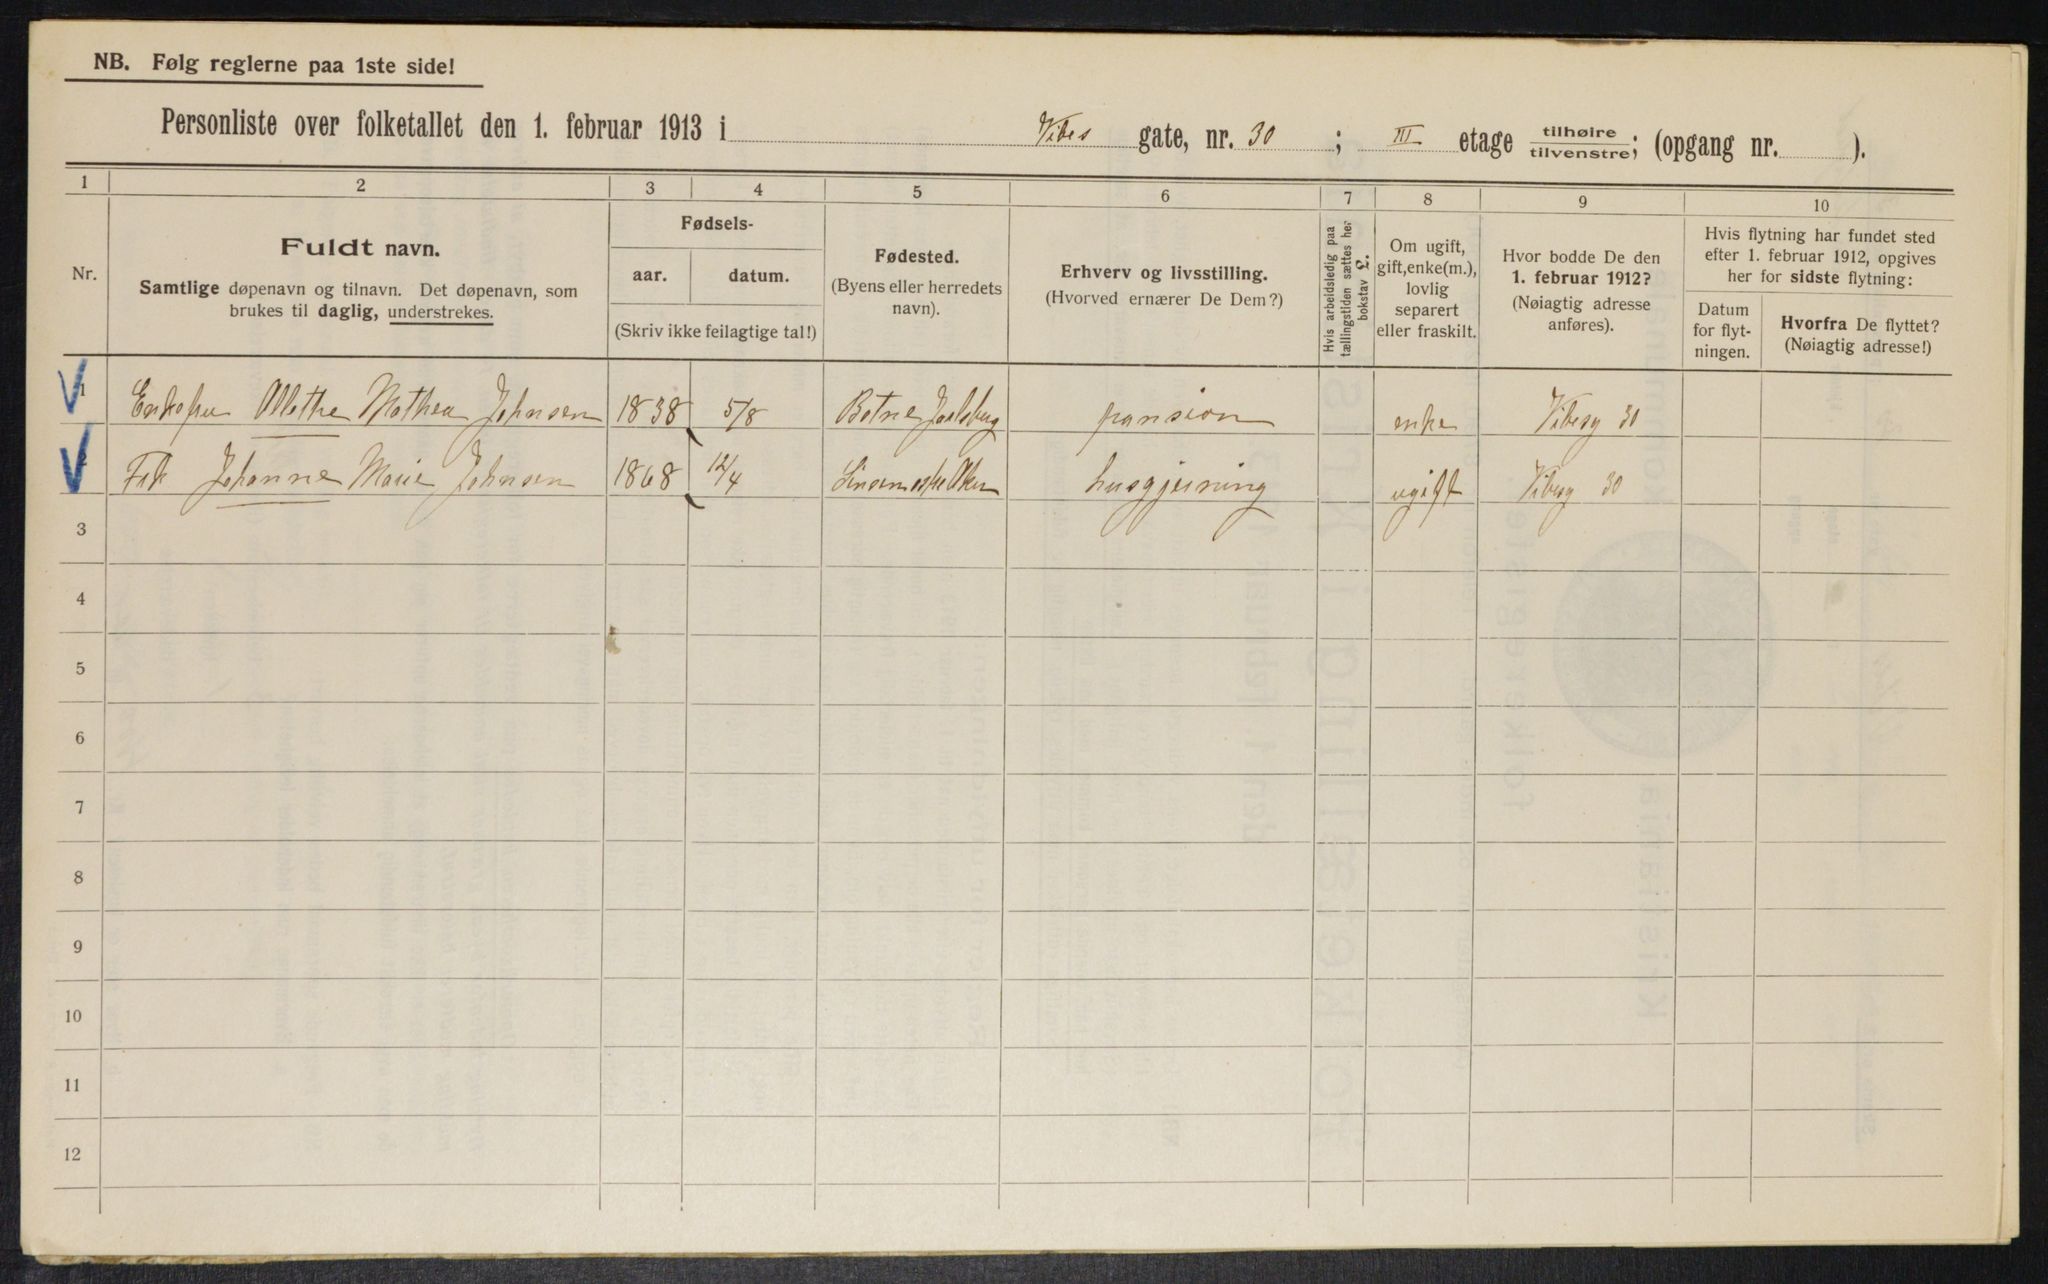 NB. Følg reglerne paa 1ste side!
Personliste over folketallet den 1. februar 1913 i Vibes gate, nr. 30 ; III etage tilhøire/tilvenstre; (opgang nr. ).
1 2 3 4 5 6 7 8 9 10
Nr.
Fuldt navn.
Samtlige døpenavn og tilnavn. Det døpenavn, som
brukes til daglig, understrekes.
Fødsels-
aar. datum.
(Skriv ikke feilagtige tal!)
Fødested.
(Byens eller herredets
navn).
Erhverv og livsstilling.
(Hvorved ernærer De Dem?)
Hvis arbeidsledig paa
tællingstiden sættes her
bokstav L.
Om ugift,
gift, enke(m.),
lovlig
separert
eller fraskilt.
Hvor bodde De den
1. februar 1912?
(Nøiagtig adresse
anføres).
Hvis flytning har fundet sted
efter 1. februar 1912, opgives
her for sidste flytning:
Datum
for flyt-
ningen.
Hvorfra De flyttet?
(Nøiagtig adresse!)
1 Enkefru Alethe Mathea Johnsen 1838 5/8 Botne Jarlsberg pansion enke Vibesg 30
2 Frk Johanne Marie Johnsen 1868 12/4 husgjerning ugift Vibesg 30
3
4
5
6
7
8
9
10
11
12